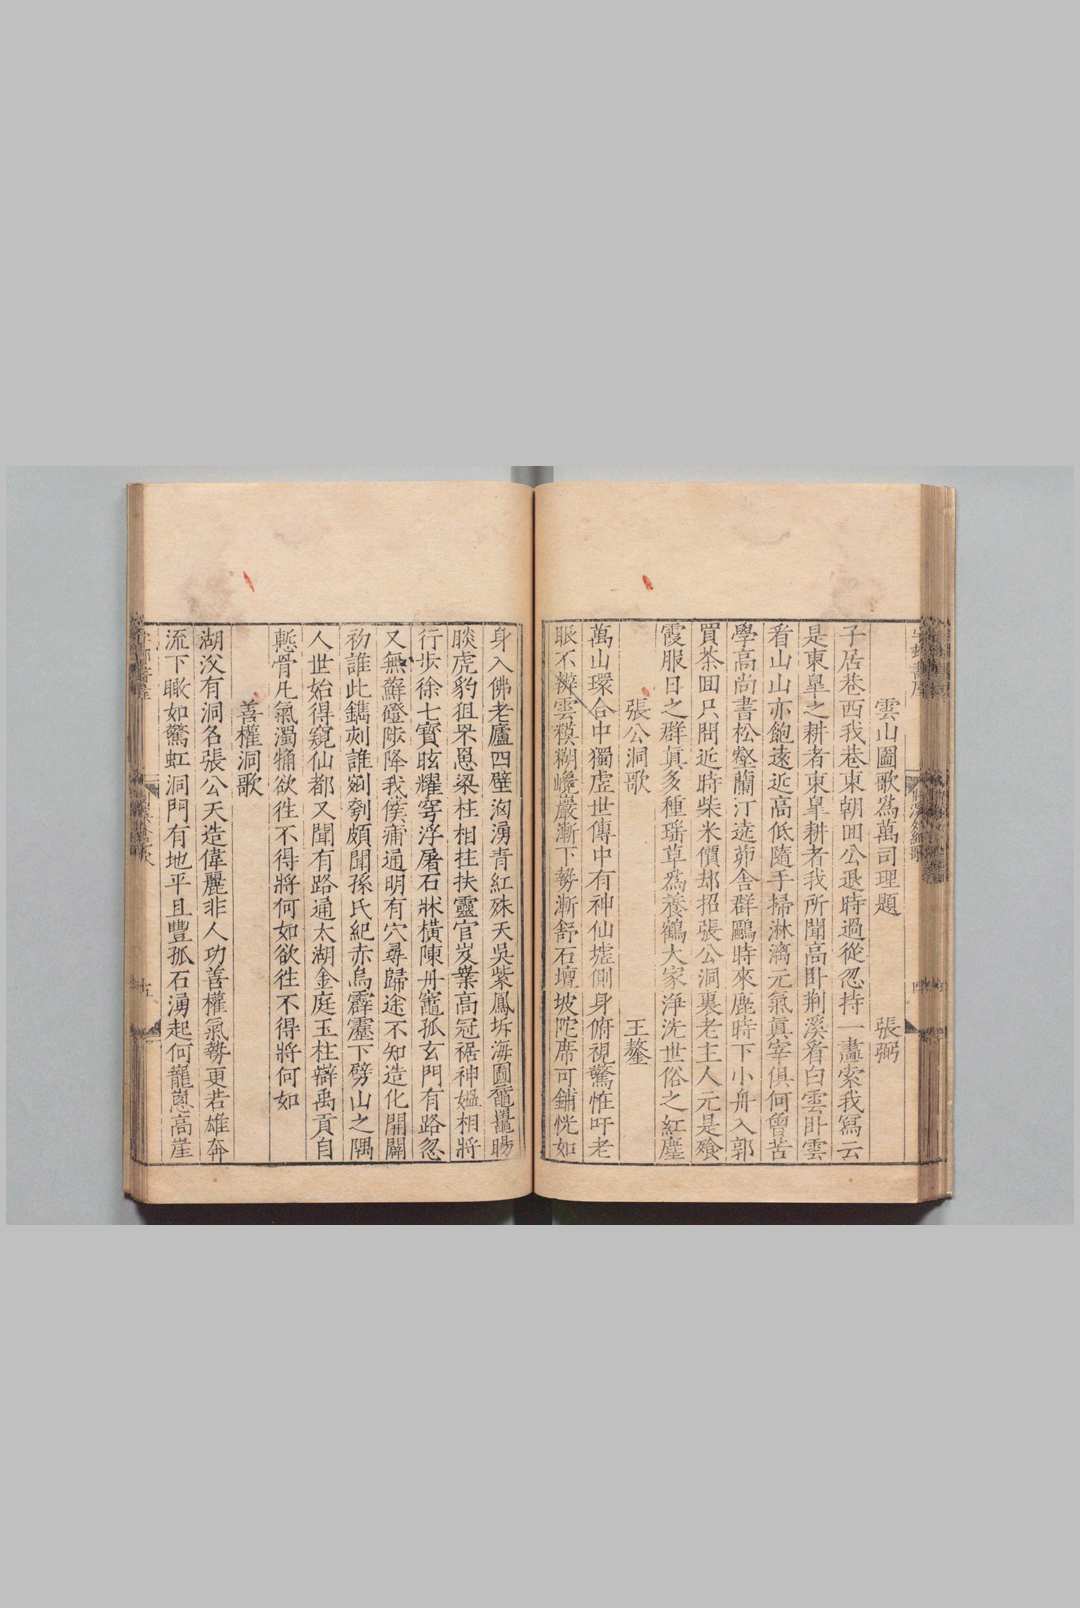 雲山圖歌爲萬司理題 張弼
子居巷西我巷東朝回公退時過從忽持一畵索我寫云
是東臯之耕者東臯耕者我所聞高臥荆溪看白雲臥雲
看山山亦飽遠近高低隨手掃淋漓元氣眞宰俱何曾苦
學高尚書松壑蘭汀遶茆舍群鷗時來鹿時下小舟入郭
買茶回只問近時柴米價却招張公洞裏老主人元是飱
霞服日之群眞多種瑶草爲養鶴大家淨洗世俗之紅塵
張公洞歌 王鏊
萬山環合中獨虛世傳中有神仙墟側身俯視驚惟吁老
眼不辨雲模糊巉巖漸下勢漸舒石壇坡陀席可鋪恍如
身入佛老廬四壁洶湧靑紅殊天吳紫鳳坼海圖黿鼉
睒虎豹狙罘罳梁柱相拄扶靈官岌嶪高冠裾神媪相將
行步徐七寶眩耀窣浮屠石牀橫陳丹竈孤玄門有路忽
又無蘚磴陟降我僕痡通明有穴尋歸途不知造化開闢
初誰此鐫刻誰剜刳頗聞孫氏紀赤烏霹靂下劈山之隅
人世始得窺仙都又聞有路通太湖金庭玉柱辯禹貢自
慙骨凡氣濁粗欲徃不得將何如欲徃不得將何如
善權洞歌
湖㳇有洞名張公天造偉麗非人功善權氣勢更若雄奔
流下瞰如驚虹洞門有地平且豐孤石湧起何巃嵸高崖